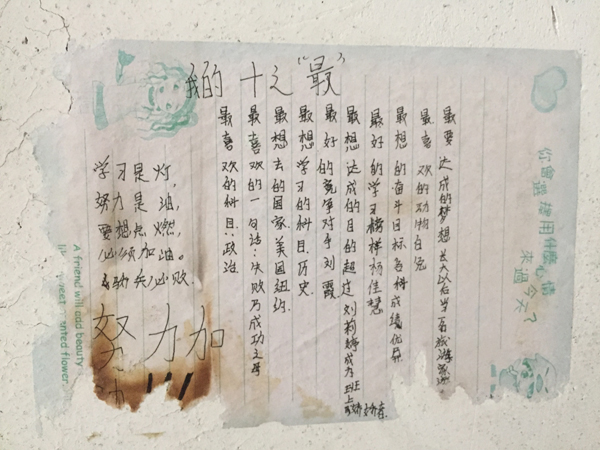 我的十之“最”
最要达成的梦想长大以后当名旅游家
最喜欢的动物白兔
最想的奋斗目标各科成绩优异
最好的学习榜样杨佳慧
最想达成的目的超过刘莉婷成为班上
最好的竞争对手刘霞
最想学习的科目:历史
最想去的国家:美国纽约
最喜欢的一句话:失败乃成功之母
最喜欢的科目:政治
学习是灯,
努力是油,
要想点燃,
必须加油。
必败.
努力加
油!!!
你會選擇用什麼心情
來過今天?
A friend will add beauty
flower.